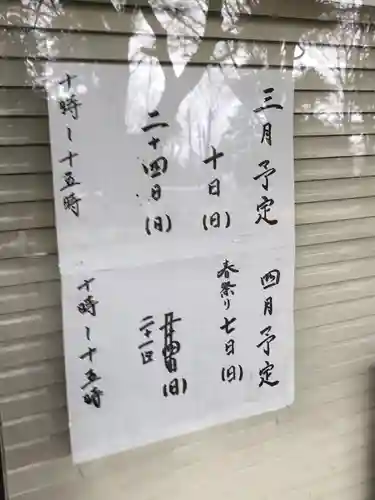 三月予定
十日(日)
二十四日(日)
十時〜十五時
四月予定
春祭り七日(日)
(日)
二十一日
十時〜十五時